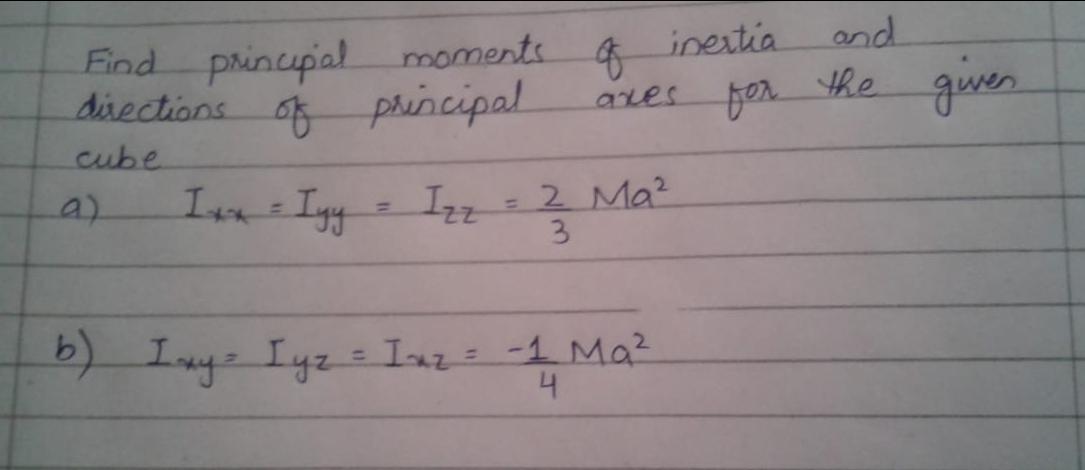 Find principal moments of inertia and
directions of principal axes for the given
cube
a) Ixx = Iyy = Izz = 2/3 Ma²
b) Ixy = Iyz = Ixz = -1/4 Ma²